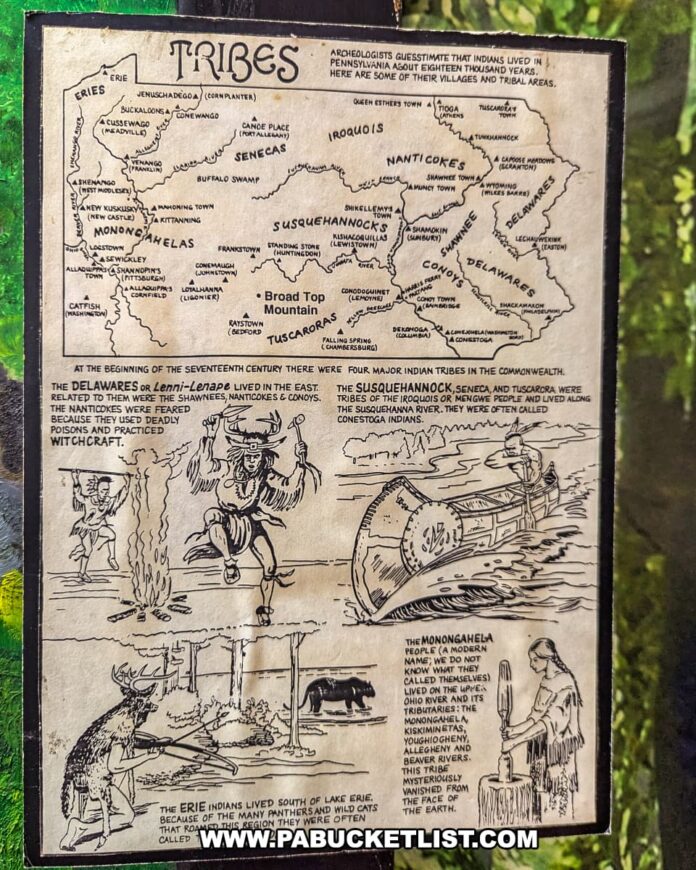 TRIBES
ARCHEOLOGISTS GUESSTIMATE THAT INDIANS LIVED IN
PENNSYLVANIA ABOUT EIGHTEEN THOUSAND YEARS.
HERE ARE SOME OF THEIR VILLAGES AND TRIBAL AREAS.
ERIE
ERIES
JENUSCHADEGO (CORNPLANTER)
BUCKALOONS
CONEWANGO
CUSSEWAGO
(MEADVILLE)
CANOE PLACE
(PORT ALLEGANY)
IROQUOIS
QUEEN ESTHER'S TOWN
TIOGA
(ATHENS)
TUSCARORA TOWN
TUNKHANNOCK
VENANGO
(FRANKLIN)
SENECAS
NANTICOKES
CAPOOSE MEADOWS
(SCRANTON)
BUFFALO SWAMP
SHAWNEE TOWN
WYOMING
(WILKES BARRE)
MUNCY TOWN
SHENANGO
(WEST MIDDLESEX)
NEW KUSKUSKY
(NEW CASTLE)
MAHONING TOWN
KITTANNING
SHIKELLEMY'S
TOWN
DELAWARES
MONONGAHELAS
SUSQUEHANNOCKS
SHAMOKIN
(SUNBURY)
SHAWNEE
LECHAUWEKINK
(EASTON)
LOGSTOWN
SEWICKLEY
FRANKSTOWN
STANDING STONE
(HUNTINGDON)
KISHACOQUILLAS
(LEWISTOWN)
JUNIATA RIVER
ALLAQUIPPA'S
TOWN
SHANNOPIN'S
(PITTSBURGH)
CONEMAUGH
(JOHNSTOWN)
CONOYS
DELAWARES
ALLAQUIPPA'S
CORNFIELD
LOYALHANNA
(LIGONIER)
• Broad Top
Mountain
CONODOGUINET
(LEMOYNE)
HARRIS FERRY
PAXTANG
CONOY TOWN
BAINBRIDGE
SHACKAMAXON
(PHILADELPHIA)
CATFISH
(WASHINGTON)
RAYSTOWN
(BEDFORD)
TUSCARORAS
FALLING SPRING
(CHAMBERSBURG)
DEKONOGA
(COLUMBIA)
CONEJOHELA (WASHINGTON
BORO)
CONESTOGA
AT THE BEGINNING OF THE SEVENTEENTH CENTURY THERE WERE FOUR MAJOR INDIAN TRIBES IN THE COMMONWEALTH.
THE DELAWARES OR Lenni-Lenape LIVED IN THE EAST.
RELATED TO THEM WERE THE SHAWNEES, NANTICOKES & CONOYS.
THE NANTICOKES WERE FEARED
BECAUSE THEY USED DEADLY
POISONS AND PRACTICED
WITCHCRAFT.
THE SUSQUEHANNOCK, SENECA, AND TUSCARORA WERE
TRIBES OF THE IROQUOIS OR MENGWE PEOPLE AND LIVED ALONG
THE SUSQUEHANNA RIVER. THEY WERE OFTEN CALLED
CONESTOGA INDIANS.
THE MONONGAHELA
PEOPLE (A MODERN
NAME; WE DO NOT
KNOW WHAT THEY
CALLED THEMSELVES)
LIVED ON THE UPPER
OHIO RIVER AND ITS
TRIBUTARIES: THE
MONONGAHELA,
KISKIMINETAS,
YOUGHIOGHENY,
ALLEGHENY AND
BEAVER RIVERS.
THIS TRIBE
MYSTERIOUSLY
VANISHED FROM
THE FACE OF
THE EARTH.
THE ERIE INDIANS LIVED SOUTH OF LAKE ERIE.
BECAUSE OF THE MANY PANTHERS AND WILD CATS
THAT ROAMED THIS REGION THEY WERE OFTEN
CALLED
WWW.PABUCKETLIST.COM